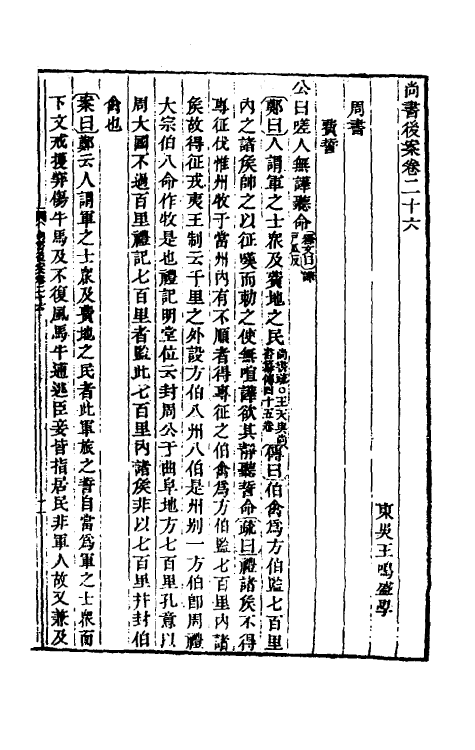 尚書後案卷二十六
東吳王鳴盛學
周書
費誓
公曰嗟人無譁聽命釋文曰譁戶瓜反
鄭曰人謂軍之士衆及費地之民尚書疏○王天與尚書纂傳四十五卷傳曰伯禽爲方伯監七百里
內之諸侯帥之以征嘆而勑之使無喧譁欲其靜聽誓命疏曰禮諸侯不得
專征伐惟州牧于當州內有不順者得專征之伯禽爲方伯監七百里內諸
侯故得征戎夷王制云千里之外設方伯八州八伯是州别一方伯卽周禮
大宗伯八命作牧是也禮記明堂位云封周公于曲阜地方七百里孔意以
周大國不過百里禮記七百里者監此七百里內諸侯非以七百里幷封伯
禽也
案曰鄭云人謂軍之士衆及費地之民者此軍旅之誓自當爲軍之士衆而
下文戒擭穽傷牛馬及不復風馬牛逋逃臣妾皆指居民非軍人故又兼及